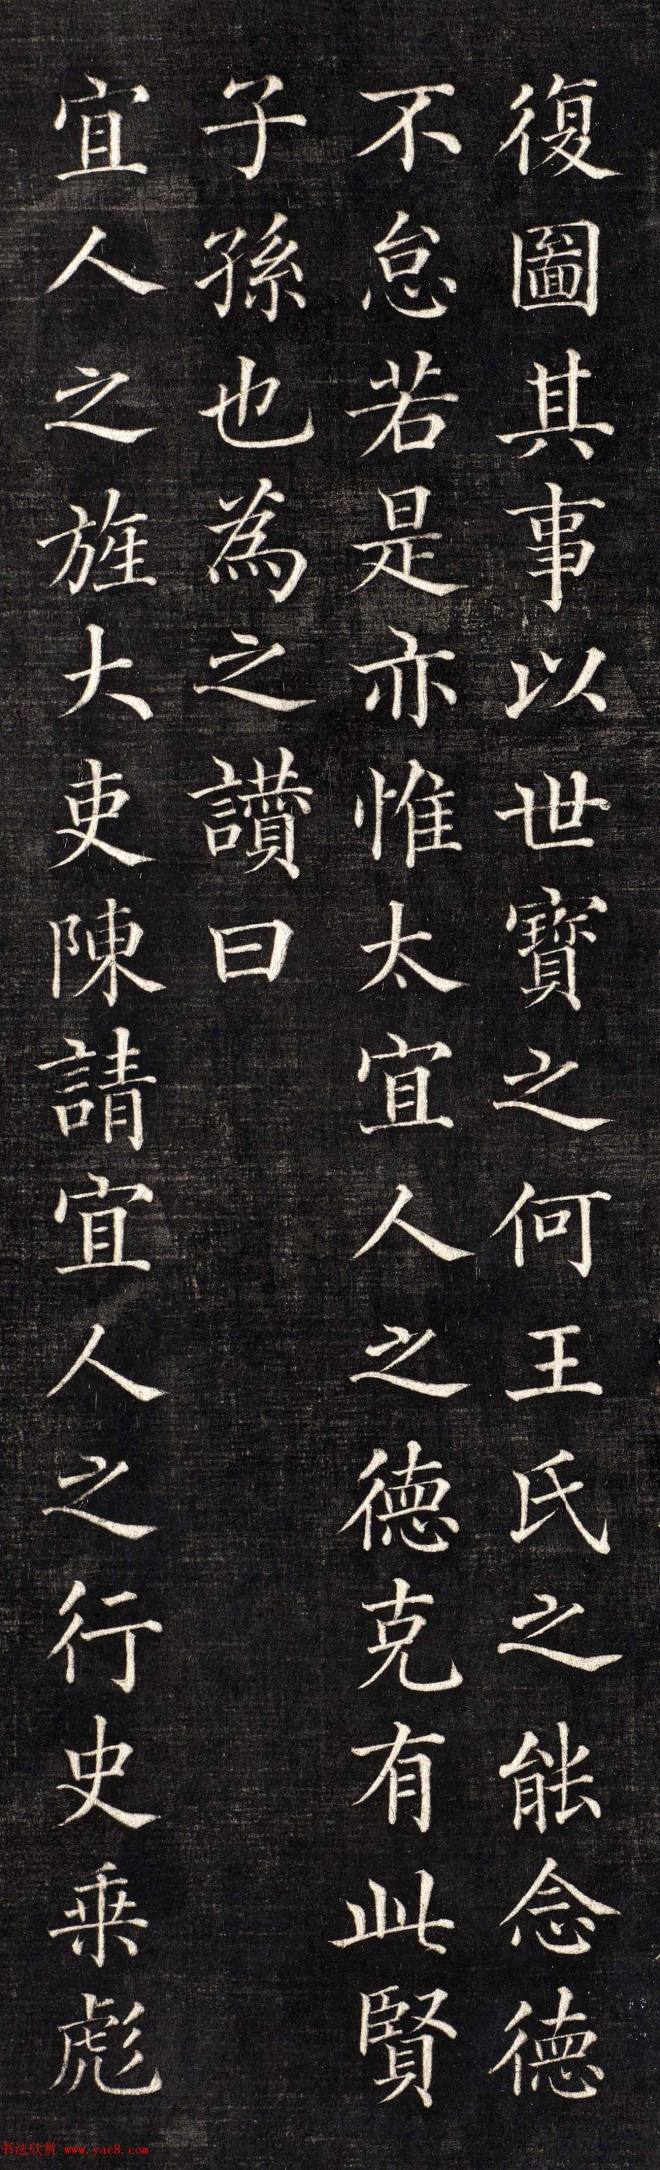 復圖其事以世寶之何王氏之能念德
不怠若是亦惟太宜人之德克有此賢
子孫也為之讚曰
宜人之旌大吏陳請宜人之行史乗彪
书法欣赏 www.yac8.com